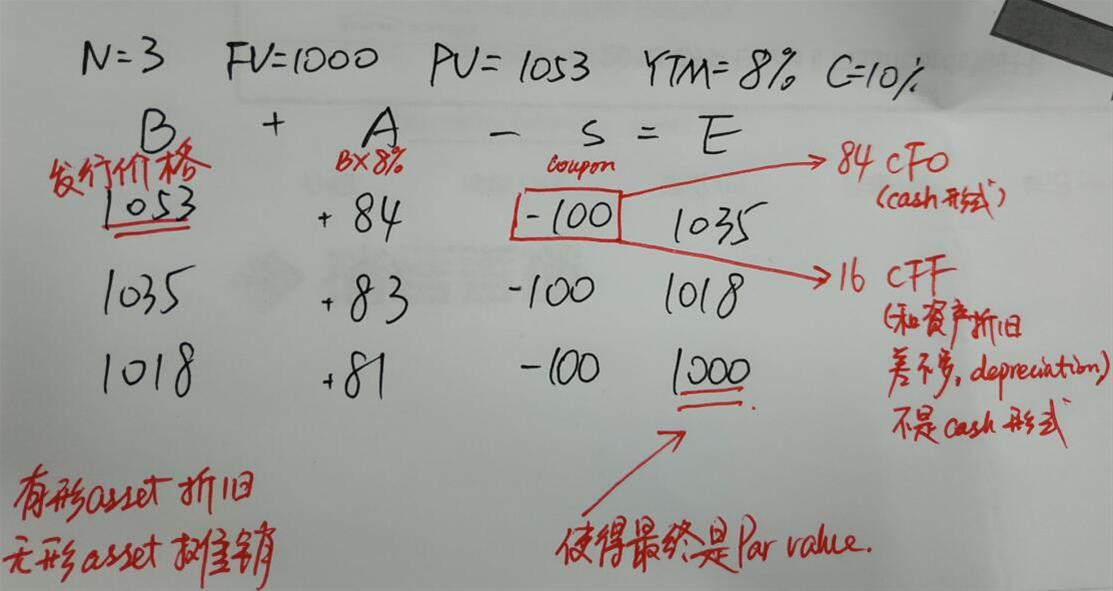 N=3 FV=1000 PV=1053 YTM=8% C=10%
B + A - S = E
发行价格 B×8% coupon
1053 +84 -100 1035
84 CFO
(cash形式)
1035 +83 -100 1018
16 CFF
(和资产折旧
差不多, depreciation)
不是cash形式
1018 +81 -100 1000
有形asset 折旧
无形asset 摊销
使得最终是Par value.